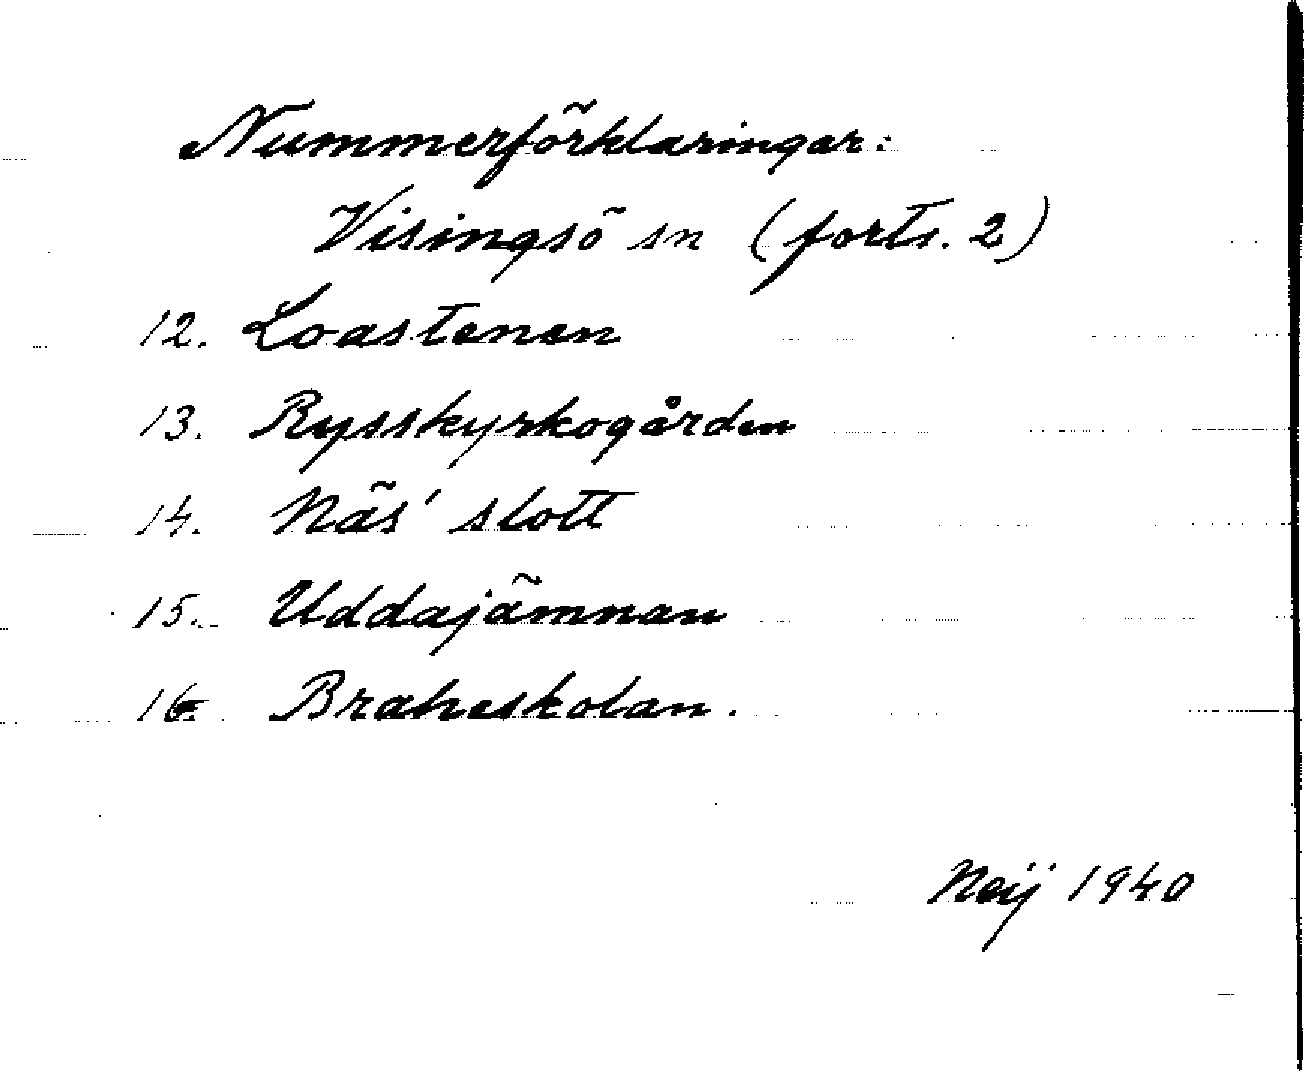 Nummerförklaringar:
Visingsö sn (forts. 2)
12. Loastenen
13. Rysskyrkogården
14. Näs' slott
15. Uddajämnan
16. Braheskolan.
Neij 1940